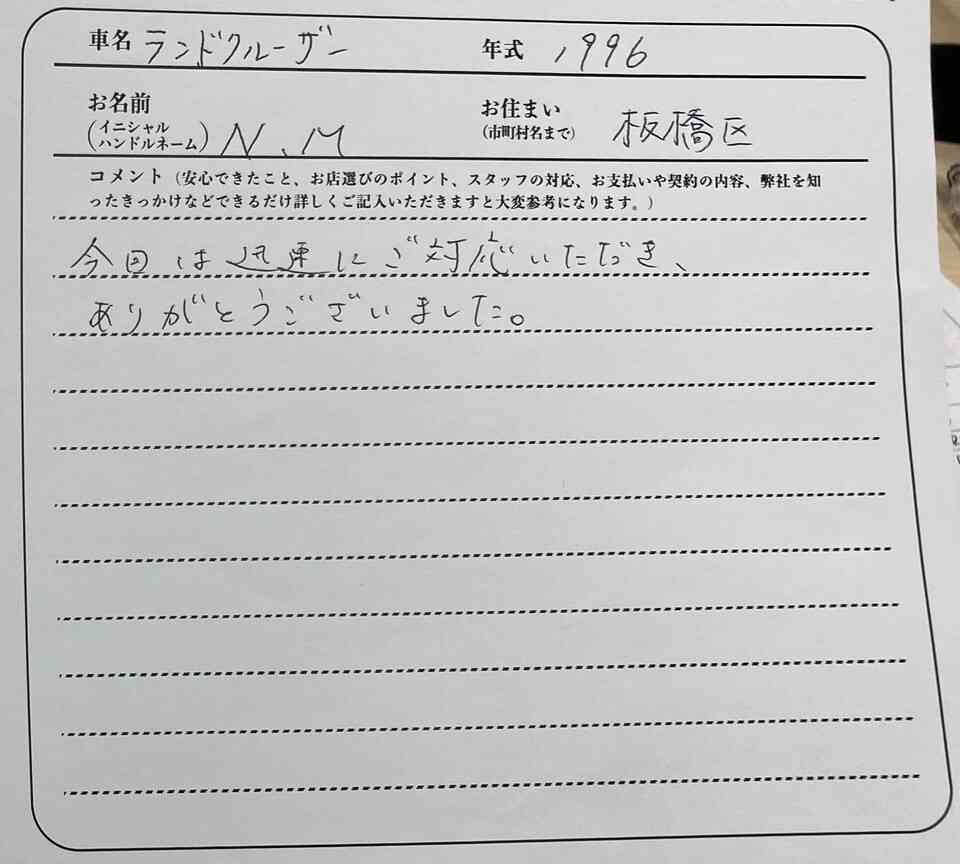 車名 ランドクルーザー 年式 1996
お名前 (イニシャル ハンドルネーム) N.M お住まい (市町村名まで) 板橋区
コメント（安心できたこと、お店選びのポイント、スタッフの対応、お支払いや契約の内容、弊社を知
ったきっかけなどできるだけ詳しくご記入いただきますと大変参考になります。）
今回は迅速にご対応いただき、
ありがとうございました。